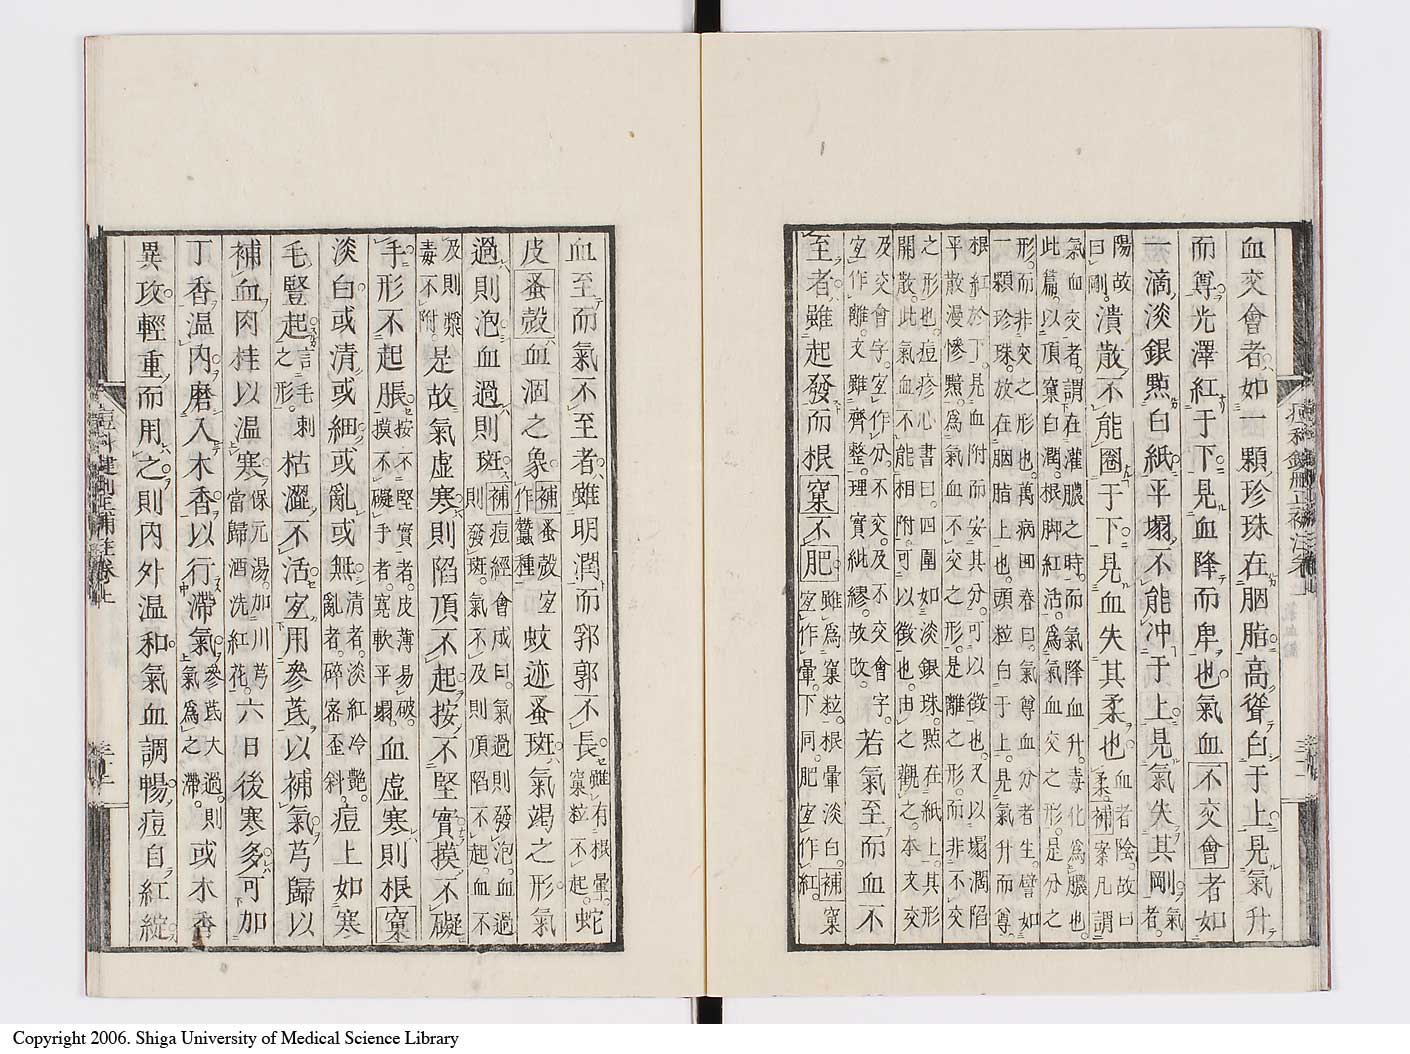 血交會者如一顆珍珠在胭脂高聳白于上見氣升
而尊光澤紅于下見血降而卑也氣血不交會者如
一滴淡銀㸃白紙平塌不能冲于上見氣失其剛氣者
陽故曰剛潰散不能圈于下見血失其柔也血者陰故曰柔補案凡謂
氣血交者謂在灌膿之時而氣降血升毒化為膿也
此篇以頂窠白潤根脚紅活為氣血交之形是分之
形而非交之形也萬病回春曰氣尊血分者生譬如
一顆珍珠放在胭脂上也頭粒白于上見氣升而尊
根紅於丁見血附而安其分可以徴也又以塌濶陷
平散漫慘㸃為氣血不交之形是離之形而非不交
之形也痘疹心書曰四圍如淡銀珠㸃在紙上其形
開散此氣血不能相附可以徴也由之觀之本文交
及交會字宜作分不交及不交會字
宜作離文雖齊整理實紕繆故改若氣至而血不
至者雖起發而根窠不肥雖為窠粒根暈淡白補窠宜作暈下同肥宜作紅
血至而氣不至者雖明潤而郛郭不長雖有根暈窠粒不起蛇
皮蚤殻血涸之象補蚤殻宜作蠶種蚊迹蚤斑氣竭之形氣
過則泡血過則斑補痘經會成曰氣過則發泡血過則發斑氣不及則頂陷不起血不
及則漿毒不附是故氣虚寒則陷頂不起按不堅實摸不礙
手形不起脹按不堅實者皮薄易破摸不礙手者寛軟平塌血虚寒則根窠
淡白或清或細或亂或無清者淡紅冷艷亂者碎密歪斜痘上如寒
毛豎起言毛刺之形枯澀不活宜用參茋以補氣芎歸以
補血肉桂以温寒保元湯加川芎當歸酒洗紅花六日後寒多可加
丁香温内磨入木香以行滯氣參茋大過則氣為之滯或木香
異攻輕重而用之則内外温和氣血調暢痘自紅綻
Copyright 2006. Shiga University of Medical Science Library